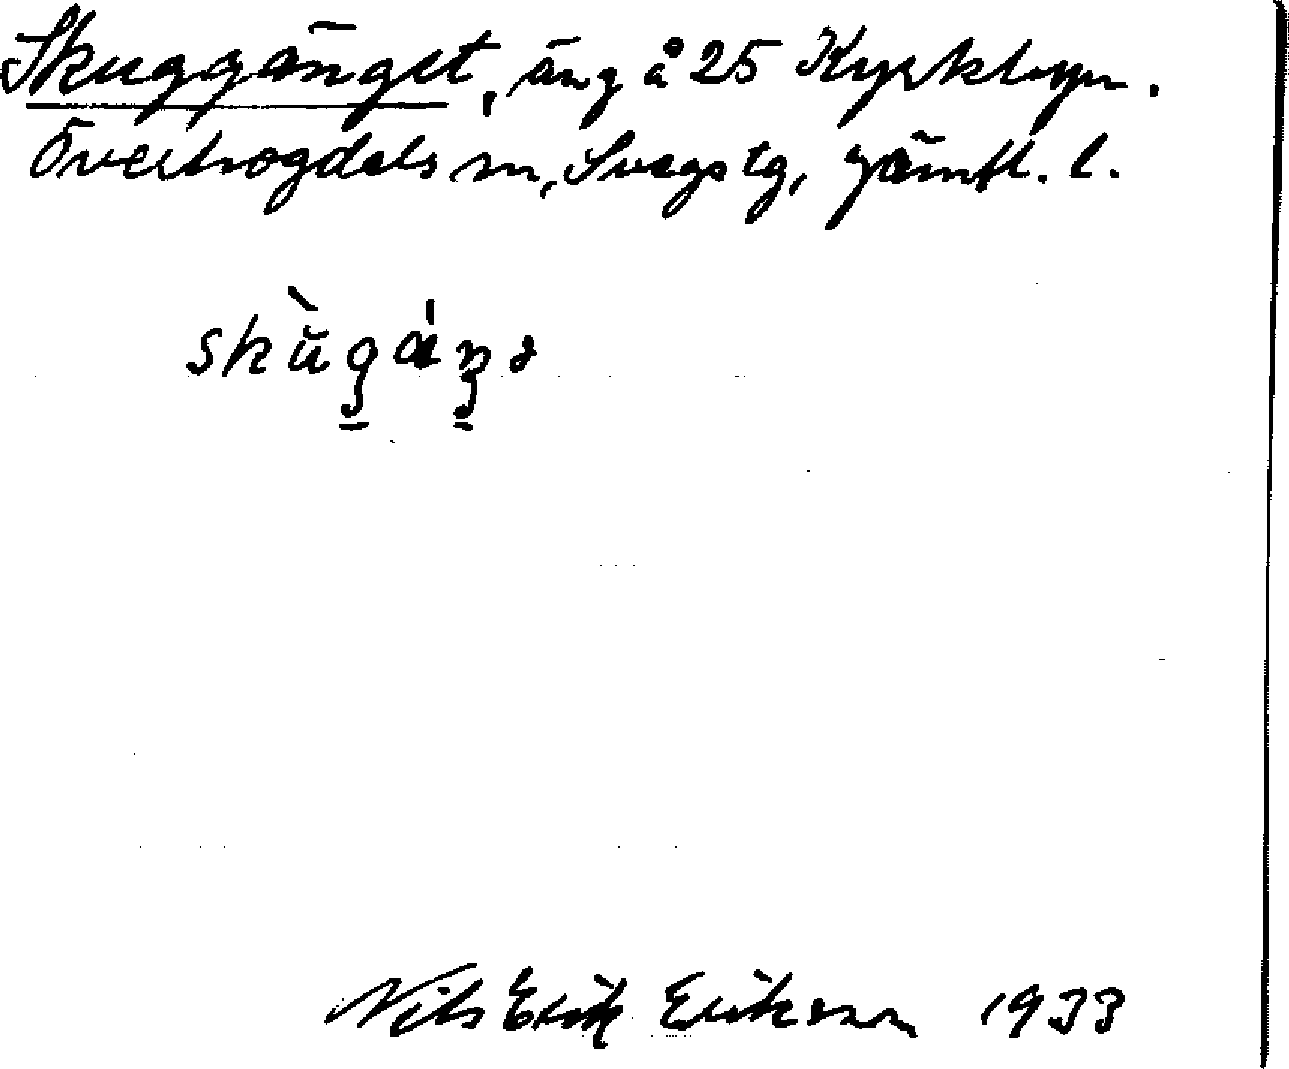 Skuggänget, äng å 25 Kyrkbyn.
Överhogdals sn, Svegs tg, Jämtl. l.
Nils Erik Erikson 1933